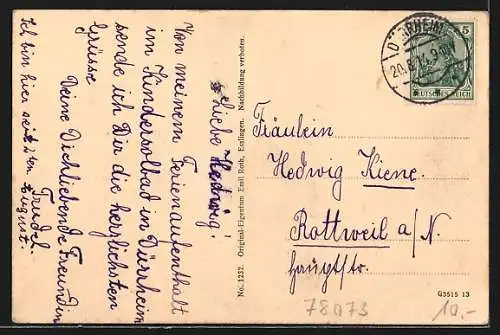 Liebe Hedwig!
Von meinem Ferienaufenthalt
im Kindersolbad in Dürrheim
sende ich Dir die herzlichsten
Grüsse
Deine Dichliebende Freundin
Trudel.
Ich bin hier seit 2ten August.
No. 1232. Original-Eigentum Emil Roth, Esslingen. Nachbildung verboten.
DÜRRHEIM
20.8.14. 9-10V
5
DEUTSCHES REICH
Fräulein
Hedwig Kiene.
Rottweil a/N.
Hauptstr.
G3515 13
78073
10,-